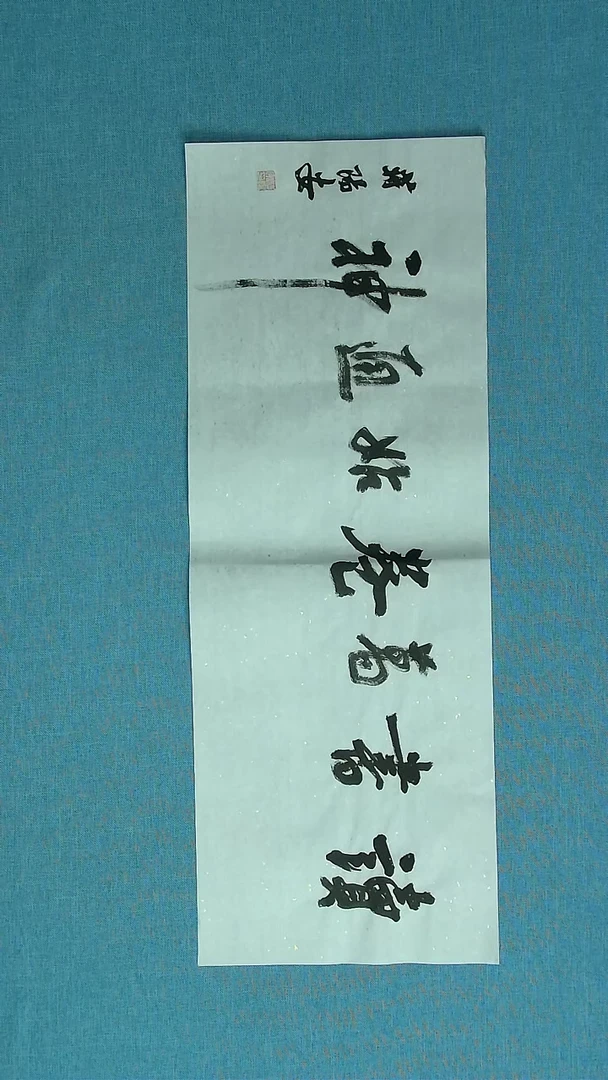 讀書萬卷始通神